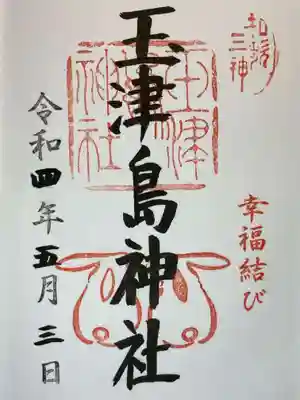 和歌
三神
幸福結び
玉津島神社
玉津
島神社
令和四年五月三日